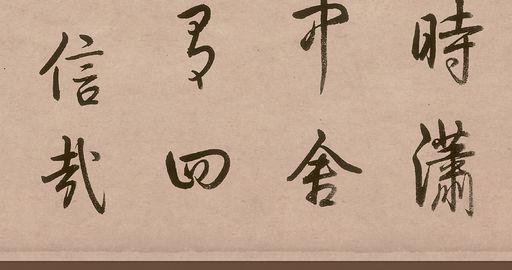 時瀟
中舍
多四
信哉